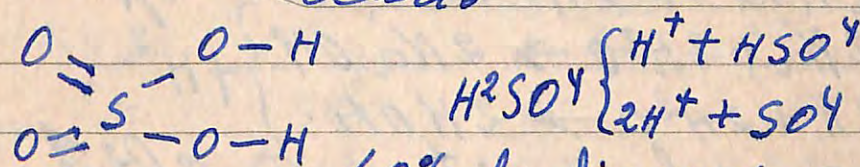 O = S - O - H
O = S - O - H
H²SO⁴ { H⁺ + HSO⁴
2H⁺ + SO⁴